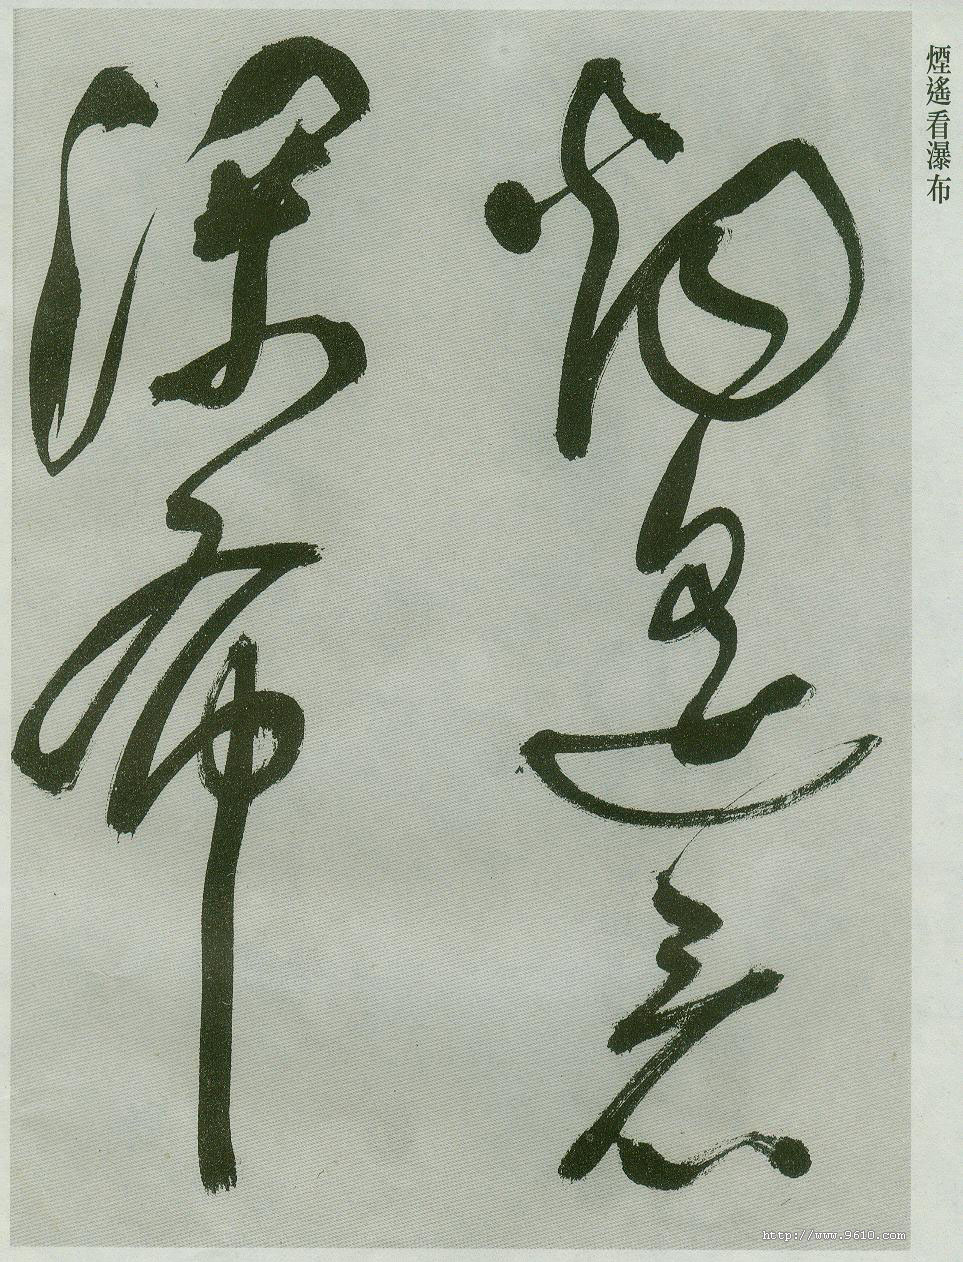 煙遙看
瀑布
煙遙看瀑布
http://www.9610.com